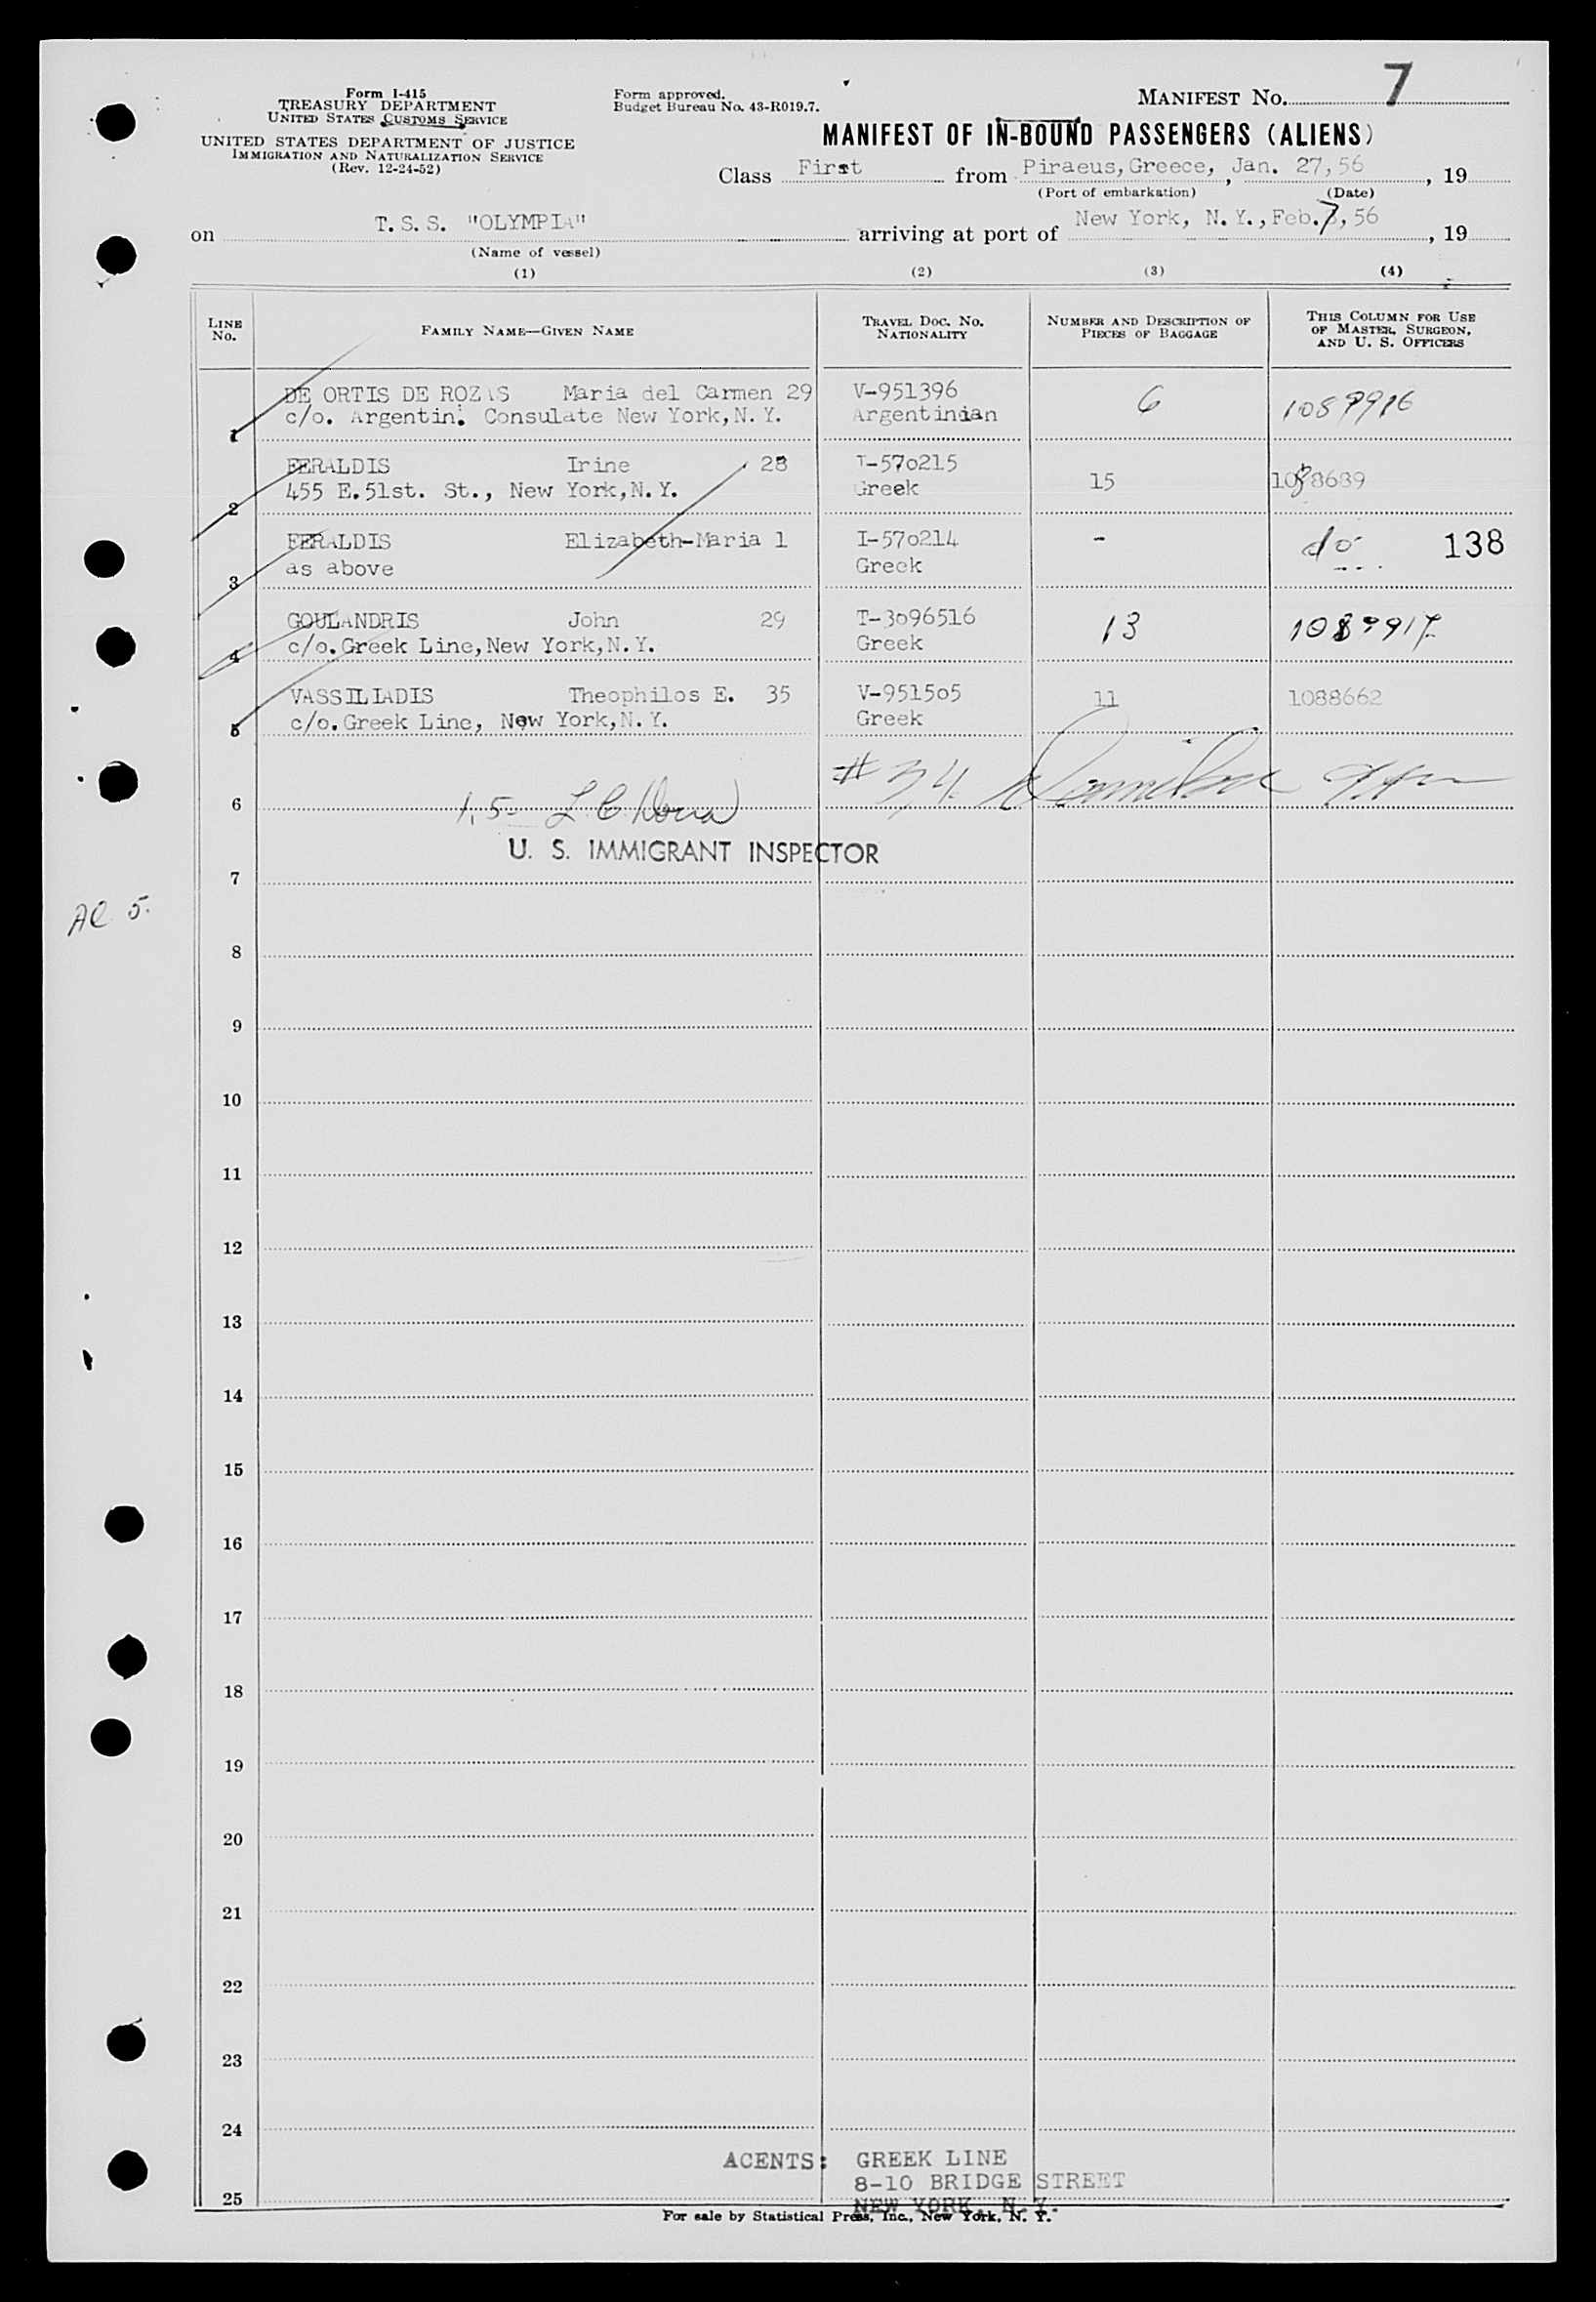 Form I-415
TREASURY DEPARTMENT
UNITED STATES CUSTOMS SERVICE
UNITED STATES DEPARTMENT OF JUSTICE
IMMIGRATION AND NATURALIZATION SERVICE
(Rev. 12-24-52)
Form approved.
Budget Bureau No. 43-R019.7.
MANIFEST NO. 7
MANIFEST OF IN-BOUND PASSENGERS (ALIENS)
Class First from Piraeus, Greece, Jan. 27, 56, 19
(Port of embarkation) (Date)
on T.S.S. "OLYMPIA" arriving at port of New York, N.Y., Feb. 7, 56, 19
(Name of vessel)
(1) (2) (3) (4)
LINE NO. FAMILY NAME—GIVEN NAME TRAVEL DOC. NO. NATIONALITY NUMBER AND DESCRIPTION OF PIECES OF BAGGAGE THIS COLUMN FOR USE OF MASTER, SURGEON, AND U. S. OFFICERS
DE ORTIS DE ROZAS Maria del Carmen 29 V-951396 6 1089916
1 c/o. Argentin. Consulate New York, N.Y. Argentinian
FERALDIS Irine 28 T-570215 15 1088689
2 455 E.51st. St., New York, N.Y. Greek
FERALDIS Elizabeth-Maria 1 I-570214 - do 138
3 as above Greek
GOULANDRIS John 29 T-3096516 13 1089917
4 c/o. Greek Line, New York, N.Y. Greek
VASSILIADIS Theophilos E. 35 V-951505 11 1088662
5 c/o. Greek Line, New York, N.Y. Greek
6 1.5- #34
U. S. IMMIGRANT INSPECTOR
7
AC 5.
8
9
10
11
12
13
14
15
16
17
18
19
20
21
22
23
24
AGENTS: GREEK LINE
8-10 BRIDGE STREET
25 NEW YORK, N.Y.
For sale by Statistical Press, Inc., New York, N. Y.